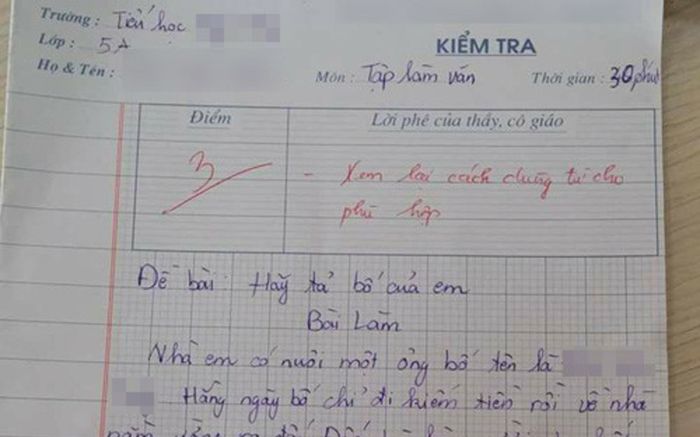 Trường : Tiểu học
Lớp : 5A
Họ & Tên :
KIỂM TRA
Môn : Tập làm văn Thời gian : 30 phút
Điểm
Lời phê của thầy, cô giáo
3
- Xem lại cách dùng từ cho
phù hợp
Đề bài: Hãy tả bố của em
Bài Làm
Nhà em có nuôi một ông bố tên là
Hằng ngày bố chỉ đi kiếm tiền rồi về nhà